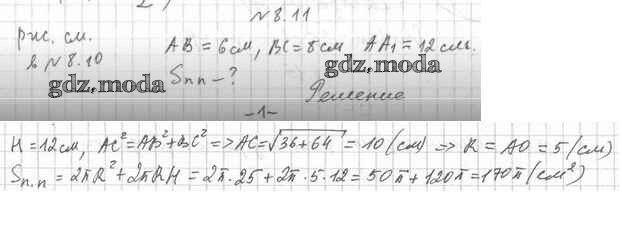 № 8.11
рис. см.
в № 8.10
AB = 6 см, BC = 8 см AA₁ = 12 см.
gdz.moda
gdz.moda
Sпп - ?
Решение
-1-
H = 12 см, AC² = AB² + BC² => AC = √36+64 = 10 (см) => R = AO = 5 (см)
Sп.п = 2πR² + 2πRH = 2π·25 + 2π·5·12 = 50π + 120π = 170π (см²)